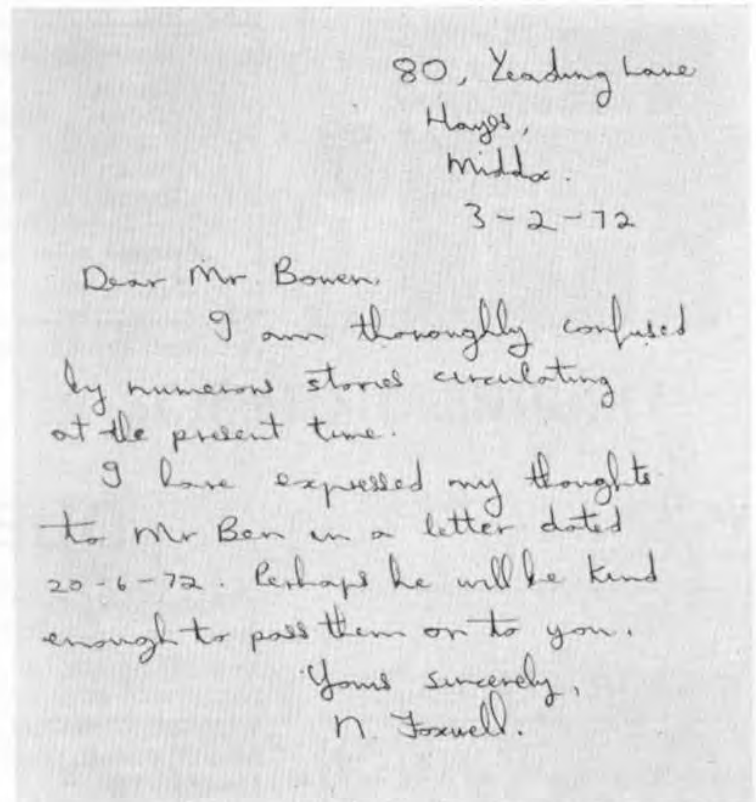 80, Yeading Lane
Hayes,
Middx.
3-2-72
Dear Mr Bowen.
I am thoroughly confused
by numerous stories circulating
at the present time.
I have expressed my thoughts
to Mr Ben in a letter dated
20-6-72. Perhaps he will be kind
enough to pass them on to you.
Yours sincerely,
N. Foxwell.